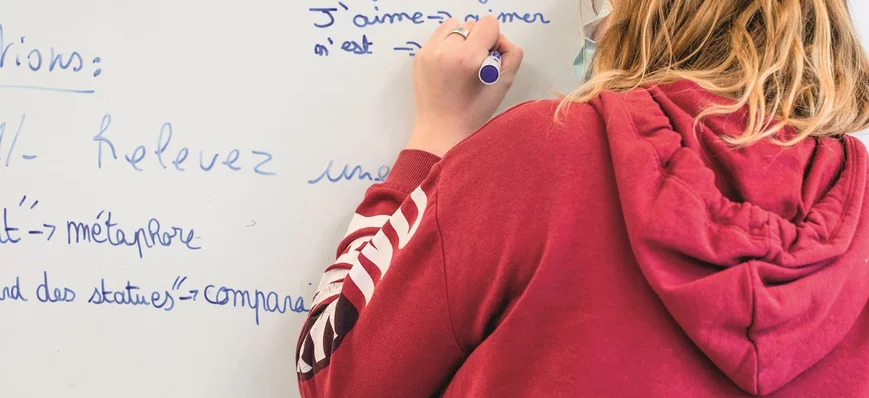 J'aime → aimer
n'est →
tions :
1/- Relevez une
t" → métaphore
rd des statues" → compara